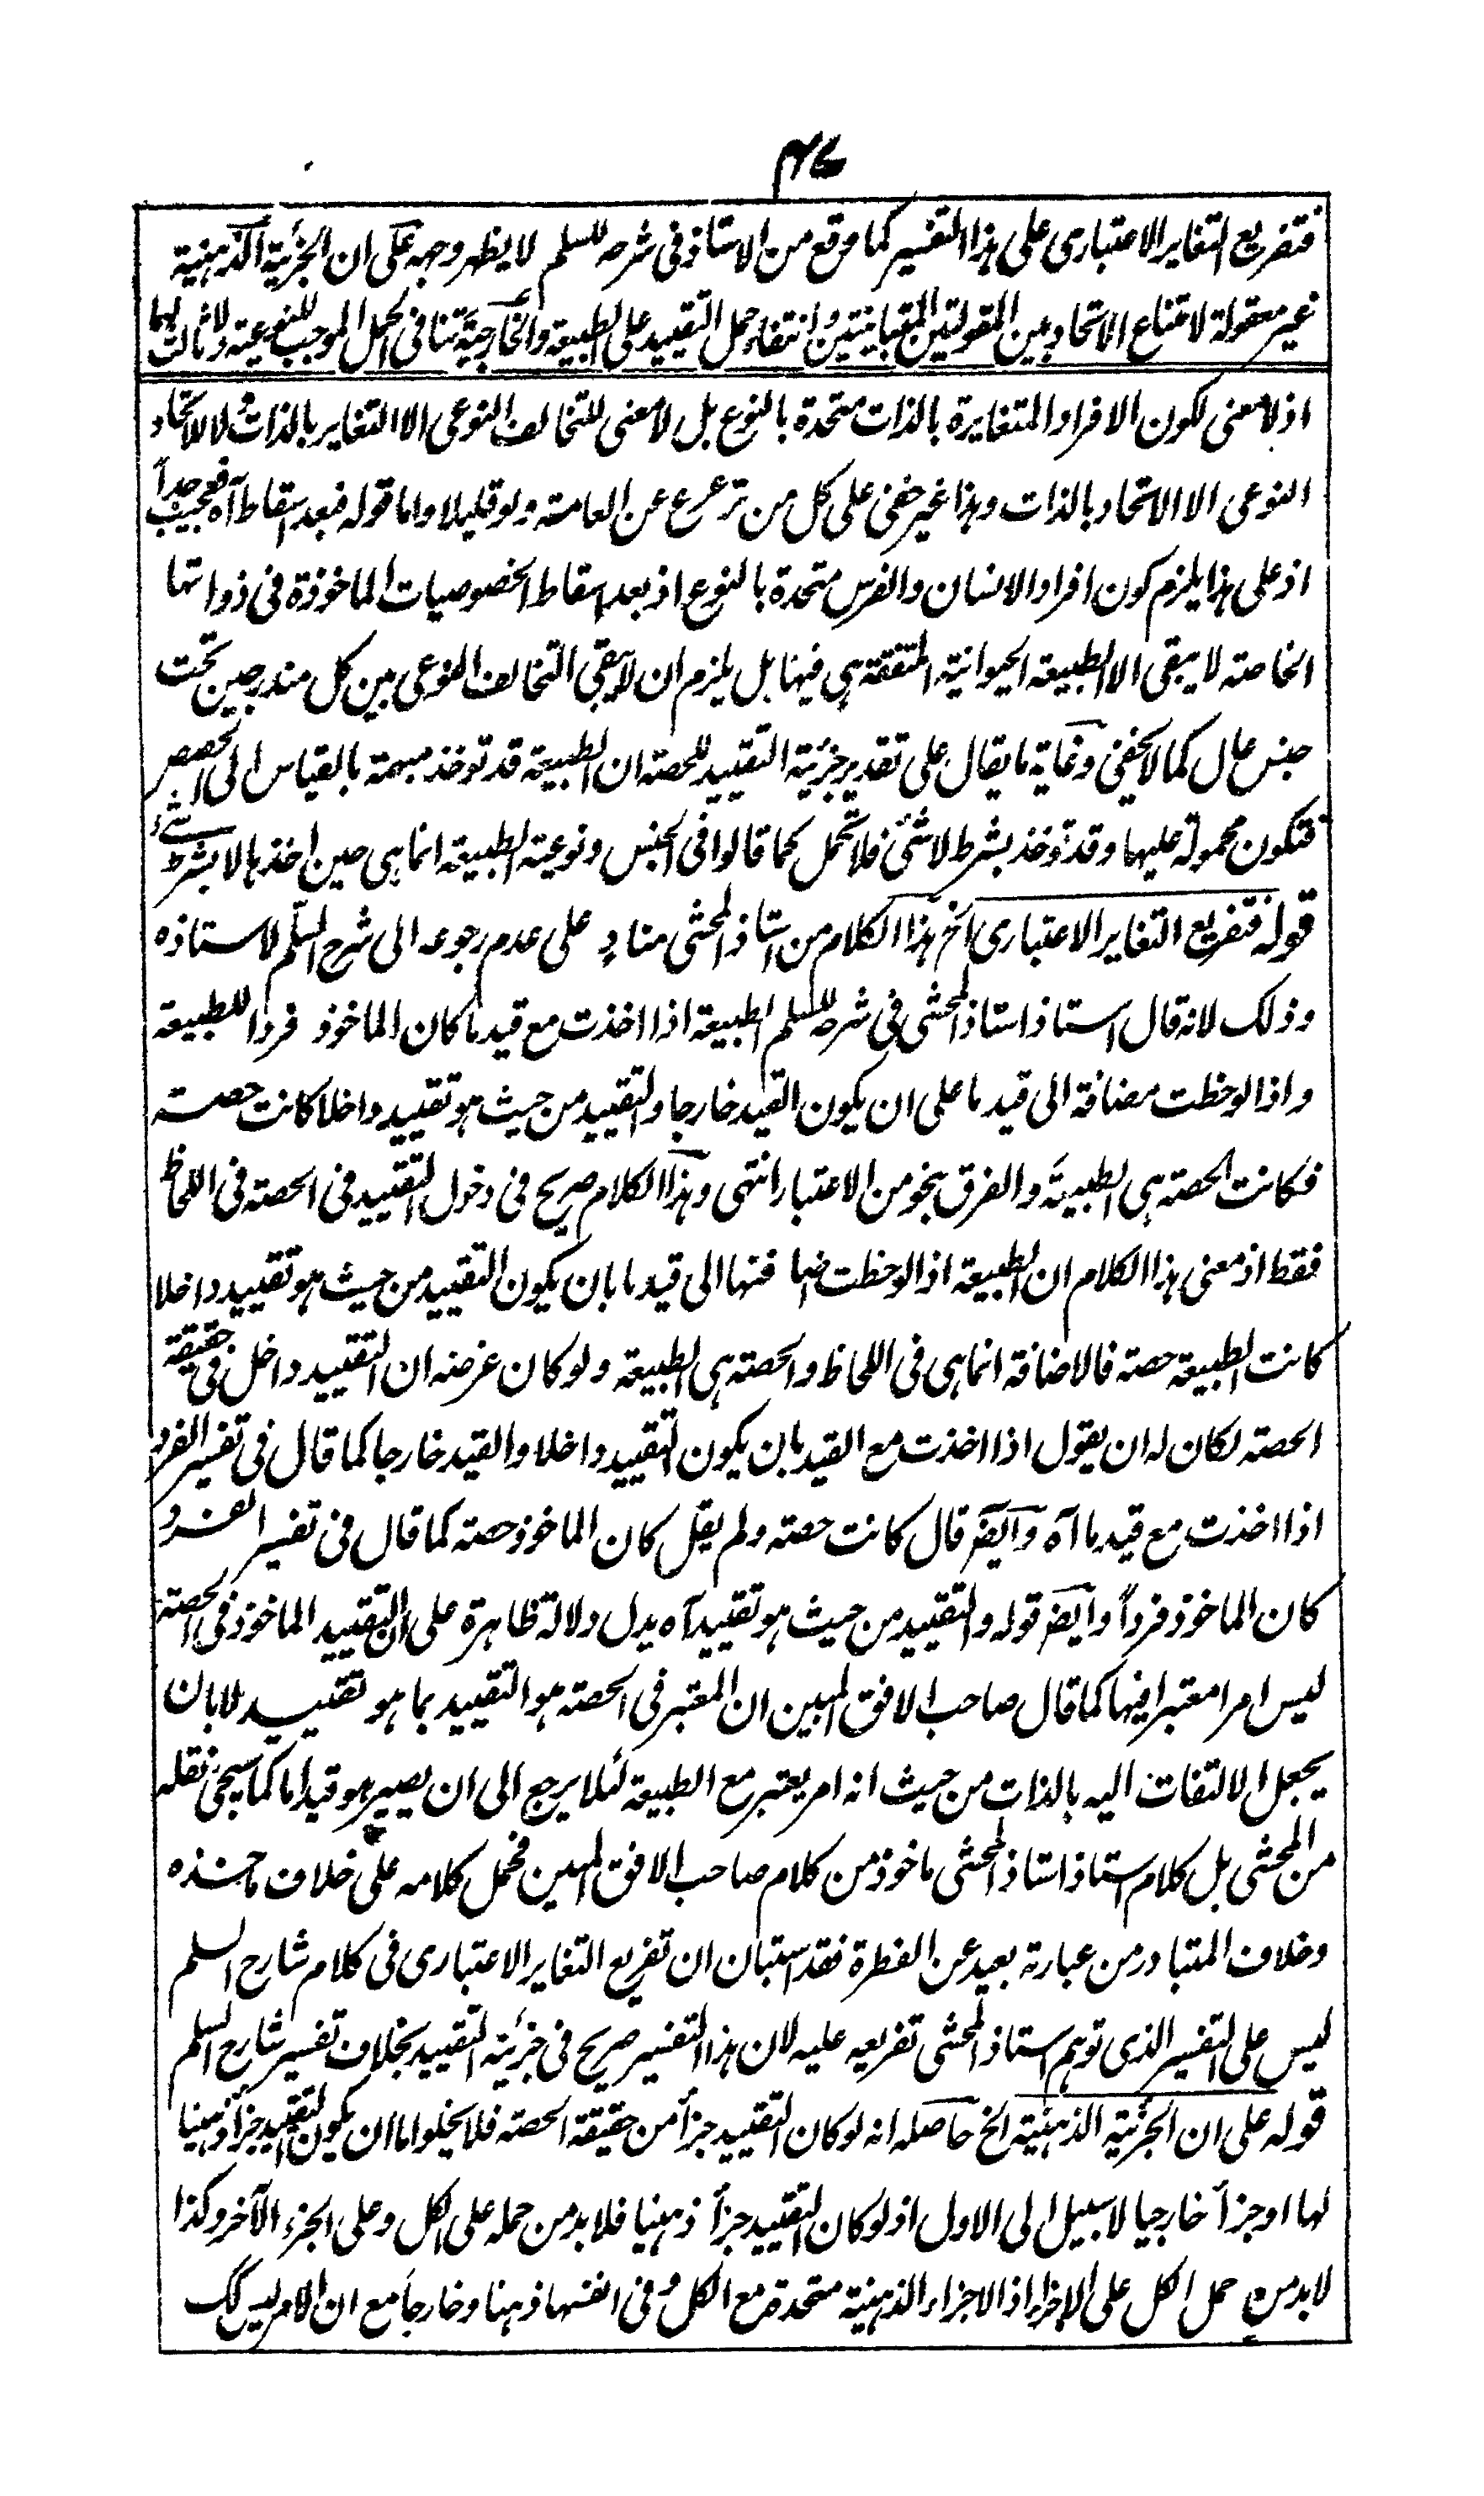 ٤٧
فتفريع التغاير الاعتبارى على هذا التفسير كما وقع من الاستاذ فى شرحه للسلم لا يظهر وجهه على ان الجزئية الذهنية
غير معقولة لامتناع الاتحاد بين المقولتين المتباينتين وانتفاء حمل التقييد على الطبيعة والخارجية تنافى الحمل الموجب للنوعية ولا ثالث لهما
اذ لا معنى لكون الافراد المتغايرة بالذات متحدة بالنوع بل لا معنى للتخالف النوعى الا التغاير بالذات ولا للاتحاد
النوعى الا الاتحاد بالذات وهذا غير خفى على كل من ترعرع عن العامة ولو قليلا واما قوله فبعد اسقاط آه فعجيب جداً
اذ على هذا يلزم كون افراد الانسان والفرس متحدة بالنوع اذ بعد اسقاط الخصوصيات الماخوذة فى ذواتها
الخاصة لا يبقى الا الطبيعة الحيوانية المتفقة هى فيها بل يلزم ان لا يبقى التخالف النوعى بين كل مندرجين تحت
جنس عال كما لا يخفى وغاية ما يقال على تقدير جزئية التقييد للحصة ان الطبيعة قد توخذ مبهمة بالقياس الى الحصص
فتكون محمولة عليها وقد توخذ بشرط لا شئ فلا تحمل كما قالوا فى الجنس ونوعية الطبيعة انما هى حين اخذها لا بشرط شئ
قوله فتفريع التغاير الاعتبارى الخ هذا الكلام من استاذ المحشى مناد على عدم رجوعه الى شرح السلم لاستاذه
وذلك لانه قال استاذ استاذ المحشى فى شرحه للسلم الطبيعة اذا اخذت مع قيد ما كان الماخوذ فردا للطبيعة
واذا لوحظت مضافة الى قيد ما على ان يكون القيد خارجا والتقييد من حيث هو تقييد داخلا كانت حصة
فكانت الحصة هى الطبيعة والفرق بنحو من الاعتبار انتهى وهذا الكلام صريح فى دخول التقييد فى الحصة فى اللحاظ
فقط اذ معنى هذا الكلام ان الطبيعة اذا لوحظت اضافتها الى قيد ما بان يكون التقييد من حيث هو تقييد داخلا
كانت الطبيعة حصة فالاضافة انما هى فى اللحاظ والحصة هى الطبيعة ولو كان غرضه ان التقييد داخل فى حقيقة
الحصة لكان له ان يقول اذا اخذت مع القيد بان يكون التقييد داخلا والقيد خارجا كما قال فى تفسير الفرد
اذا اخذت مع قيد ما آه وايضا قال كانت حصة ولم يقل كان الماخوذ حصة كما قال فى تفسير الفرد
كان الماخوذ فرداً وايضا قوله والتقييد من حيث هو تقييد آه يدل دلالة ظاهرة على ان التقييد الماخوذ فى الحصة
ليس امرا معتبرا فيها كما قال صاحب الافق المبين ان المعتبر فى الحصة هو التقييد بما هو تقييد لا بان
يجعل الالتفات اليه بالذات من حيث انه امر يعتبر مع الطبيعة لئلا يرجع الى ان يصير هو قيدا ما كما سيجئ نقله
من المحشى بل كلام استاذ استاذ المحشى ماخوذ من كلام صاحب الافق المبين فحمل كلامه على خلاف ماخذه
وخلاف المتبادر من عبارته بعيد عن الفطرة فقد استبان ان تفريع التغاير الاعتبارى فى كلام شارح السلم
ليس على التفسير الذى توهم استاذ المحشى تفريعه عليه لان هذا التفسير صريح فى جزئية التقييد بخلاف تفسير شارح السلم
قوله على ان الجزئية الذهنية الخ حاصله انه لو كان التقييد جزأ من حقيقة الحصة فلا يخلوا ما ان يكون التقييد جزأ ذهنيا
لها او جزأ خارجيا لا سبيل الى الاول اذ لو كان التقييد جزأ ذهنيا فلا بد من حمله على الكل وعلى الجزء الآخر وكذا
لابد من حمل الكل على الاجزاء اذ الاجزاء الذهنية متحدة مع الكل وفى انفسها ذهنا وخارجا مع ان الامر ليس كك